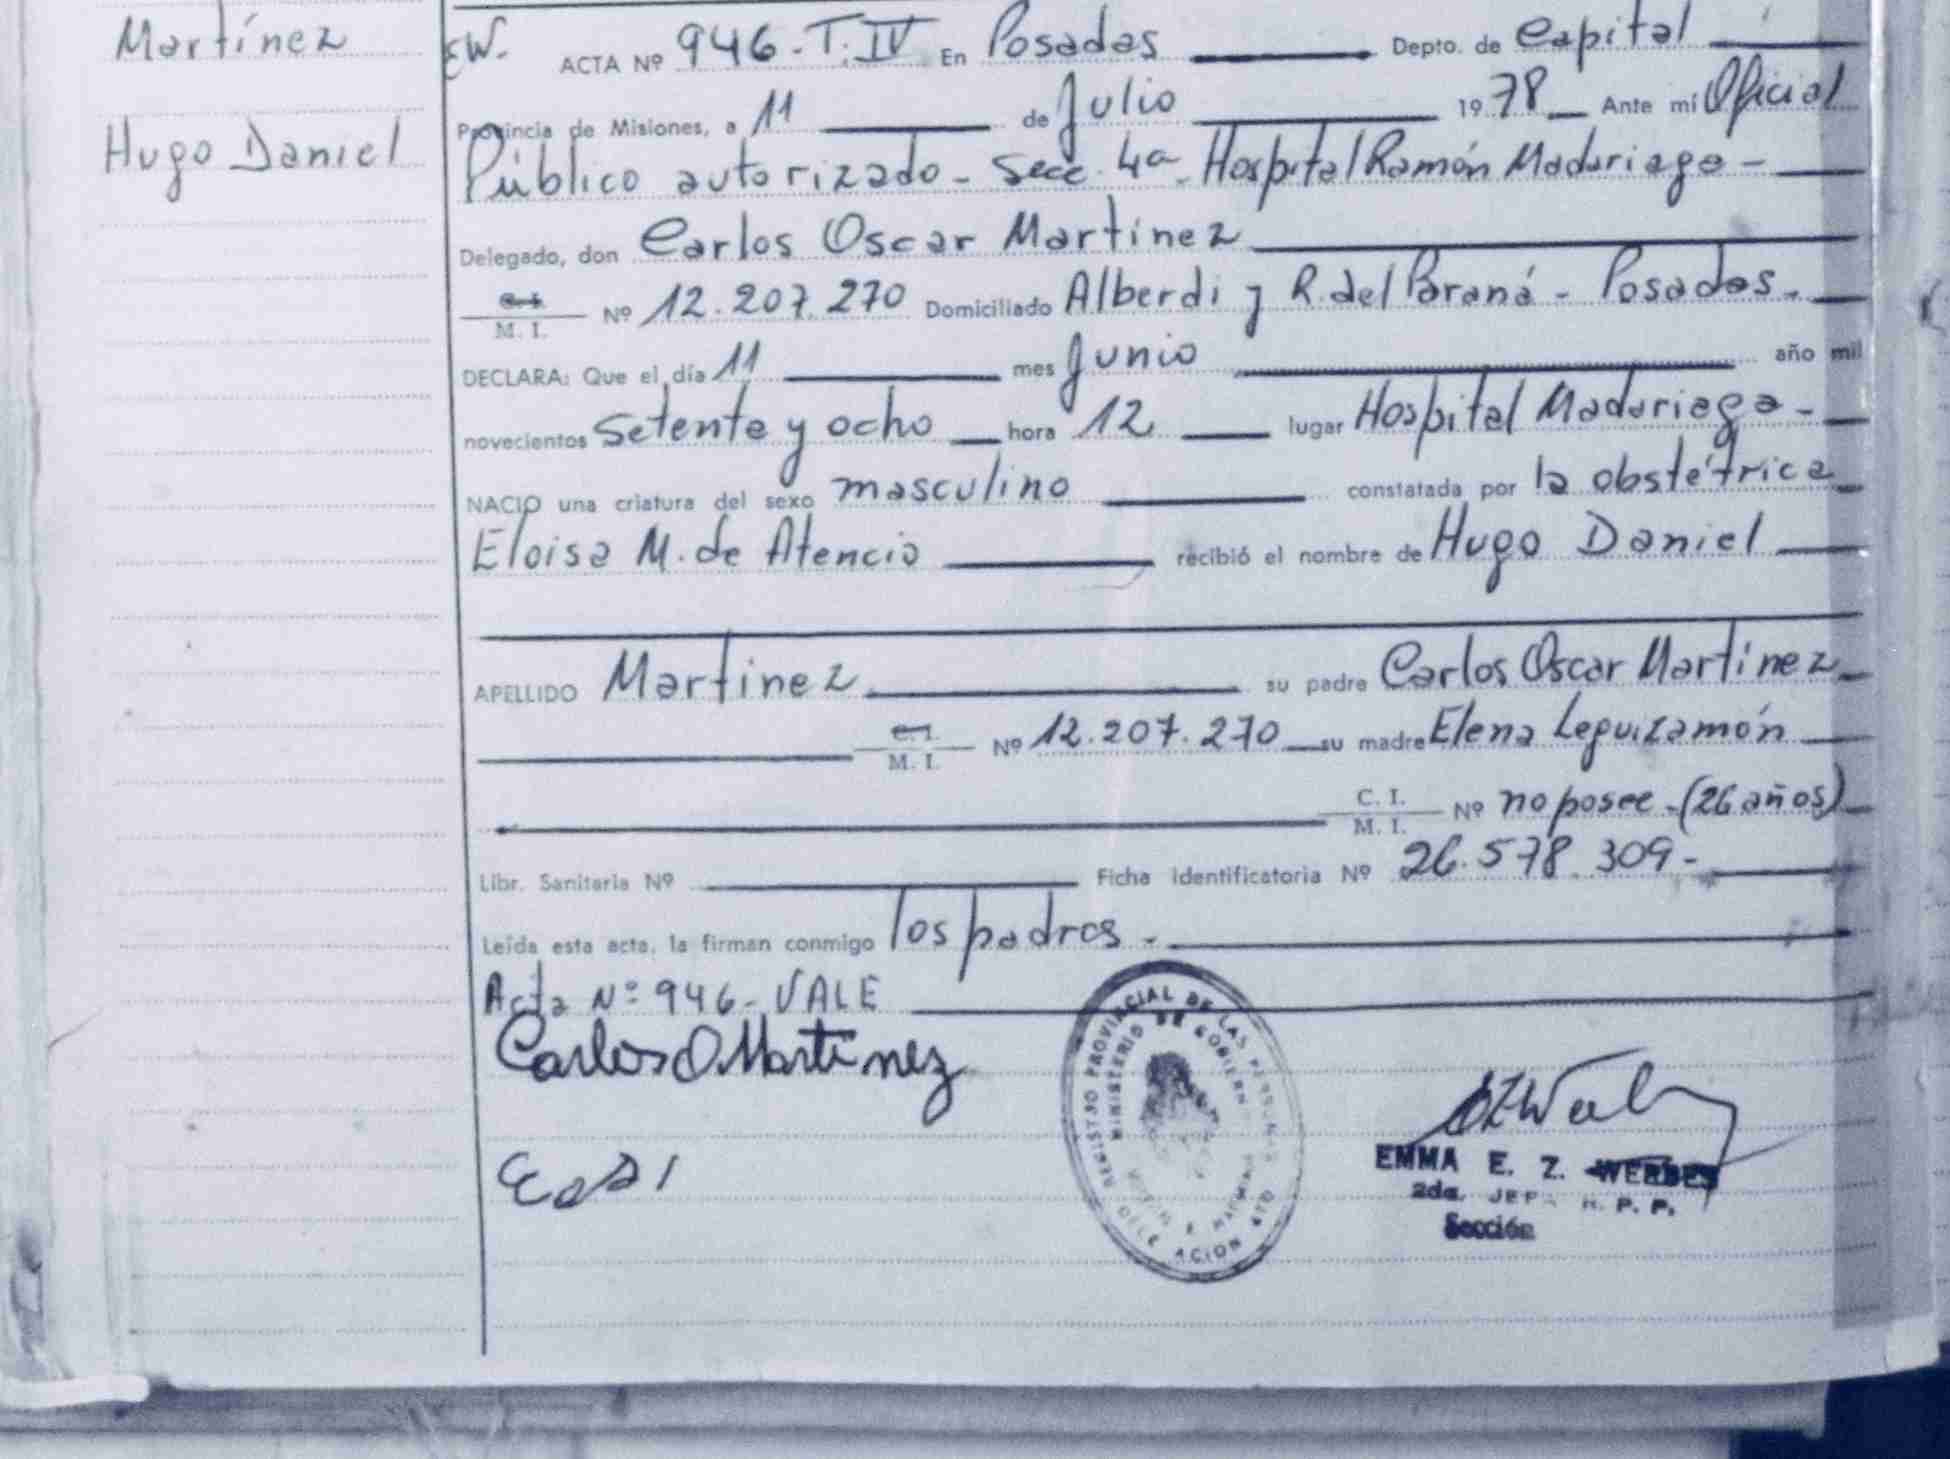 Martínez
Hugo Daniel
EW.
ACTA Nº 946-T.IV En Posadas Depto. de Capital
Provincia de Misiones, a 11 de Julio 1978 Ante mí Oficial
Público autorizado - Secc. 4a. Hospital Ramón Madariaga -
Delegado, don Carlos Oscar Martínez
C.I.
M. I. Nº 12.207.270 Domiciliado Alberdi y R. del Paraná - Posadas.
DECLARA: Que el día 11 mes Junio año mil
novecientos setenta y ocho hora 12 lugar Hospital Madariaga -
NACIO una criatura del sexo masculino constatada por la obstétrica
Eloisa M. de Atencio recibió el nombre de Hugo Daniel
APELLIDO Martínez su padre Carlos Oscar Martínez
C.I.
M. I. Nº 12.207.270 su madre Elena Leguizamón
C. I.
M. I. Nº no posee - (26 años)
Libr. Sanitaria Nº Ficha Identificatoria Nº 26.578.309-
Leída esta acta, la firman conmigo los padres -
Acta Nº 946 - VALE
Carlos O Martínez
REGISTRO PROVINCIAL DE LAS PERSONAS
MINISTERIO DE GOBIERNO
EMMA E. Z. WERBES
2da. JEFA R. P. P.
Sección